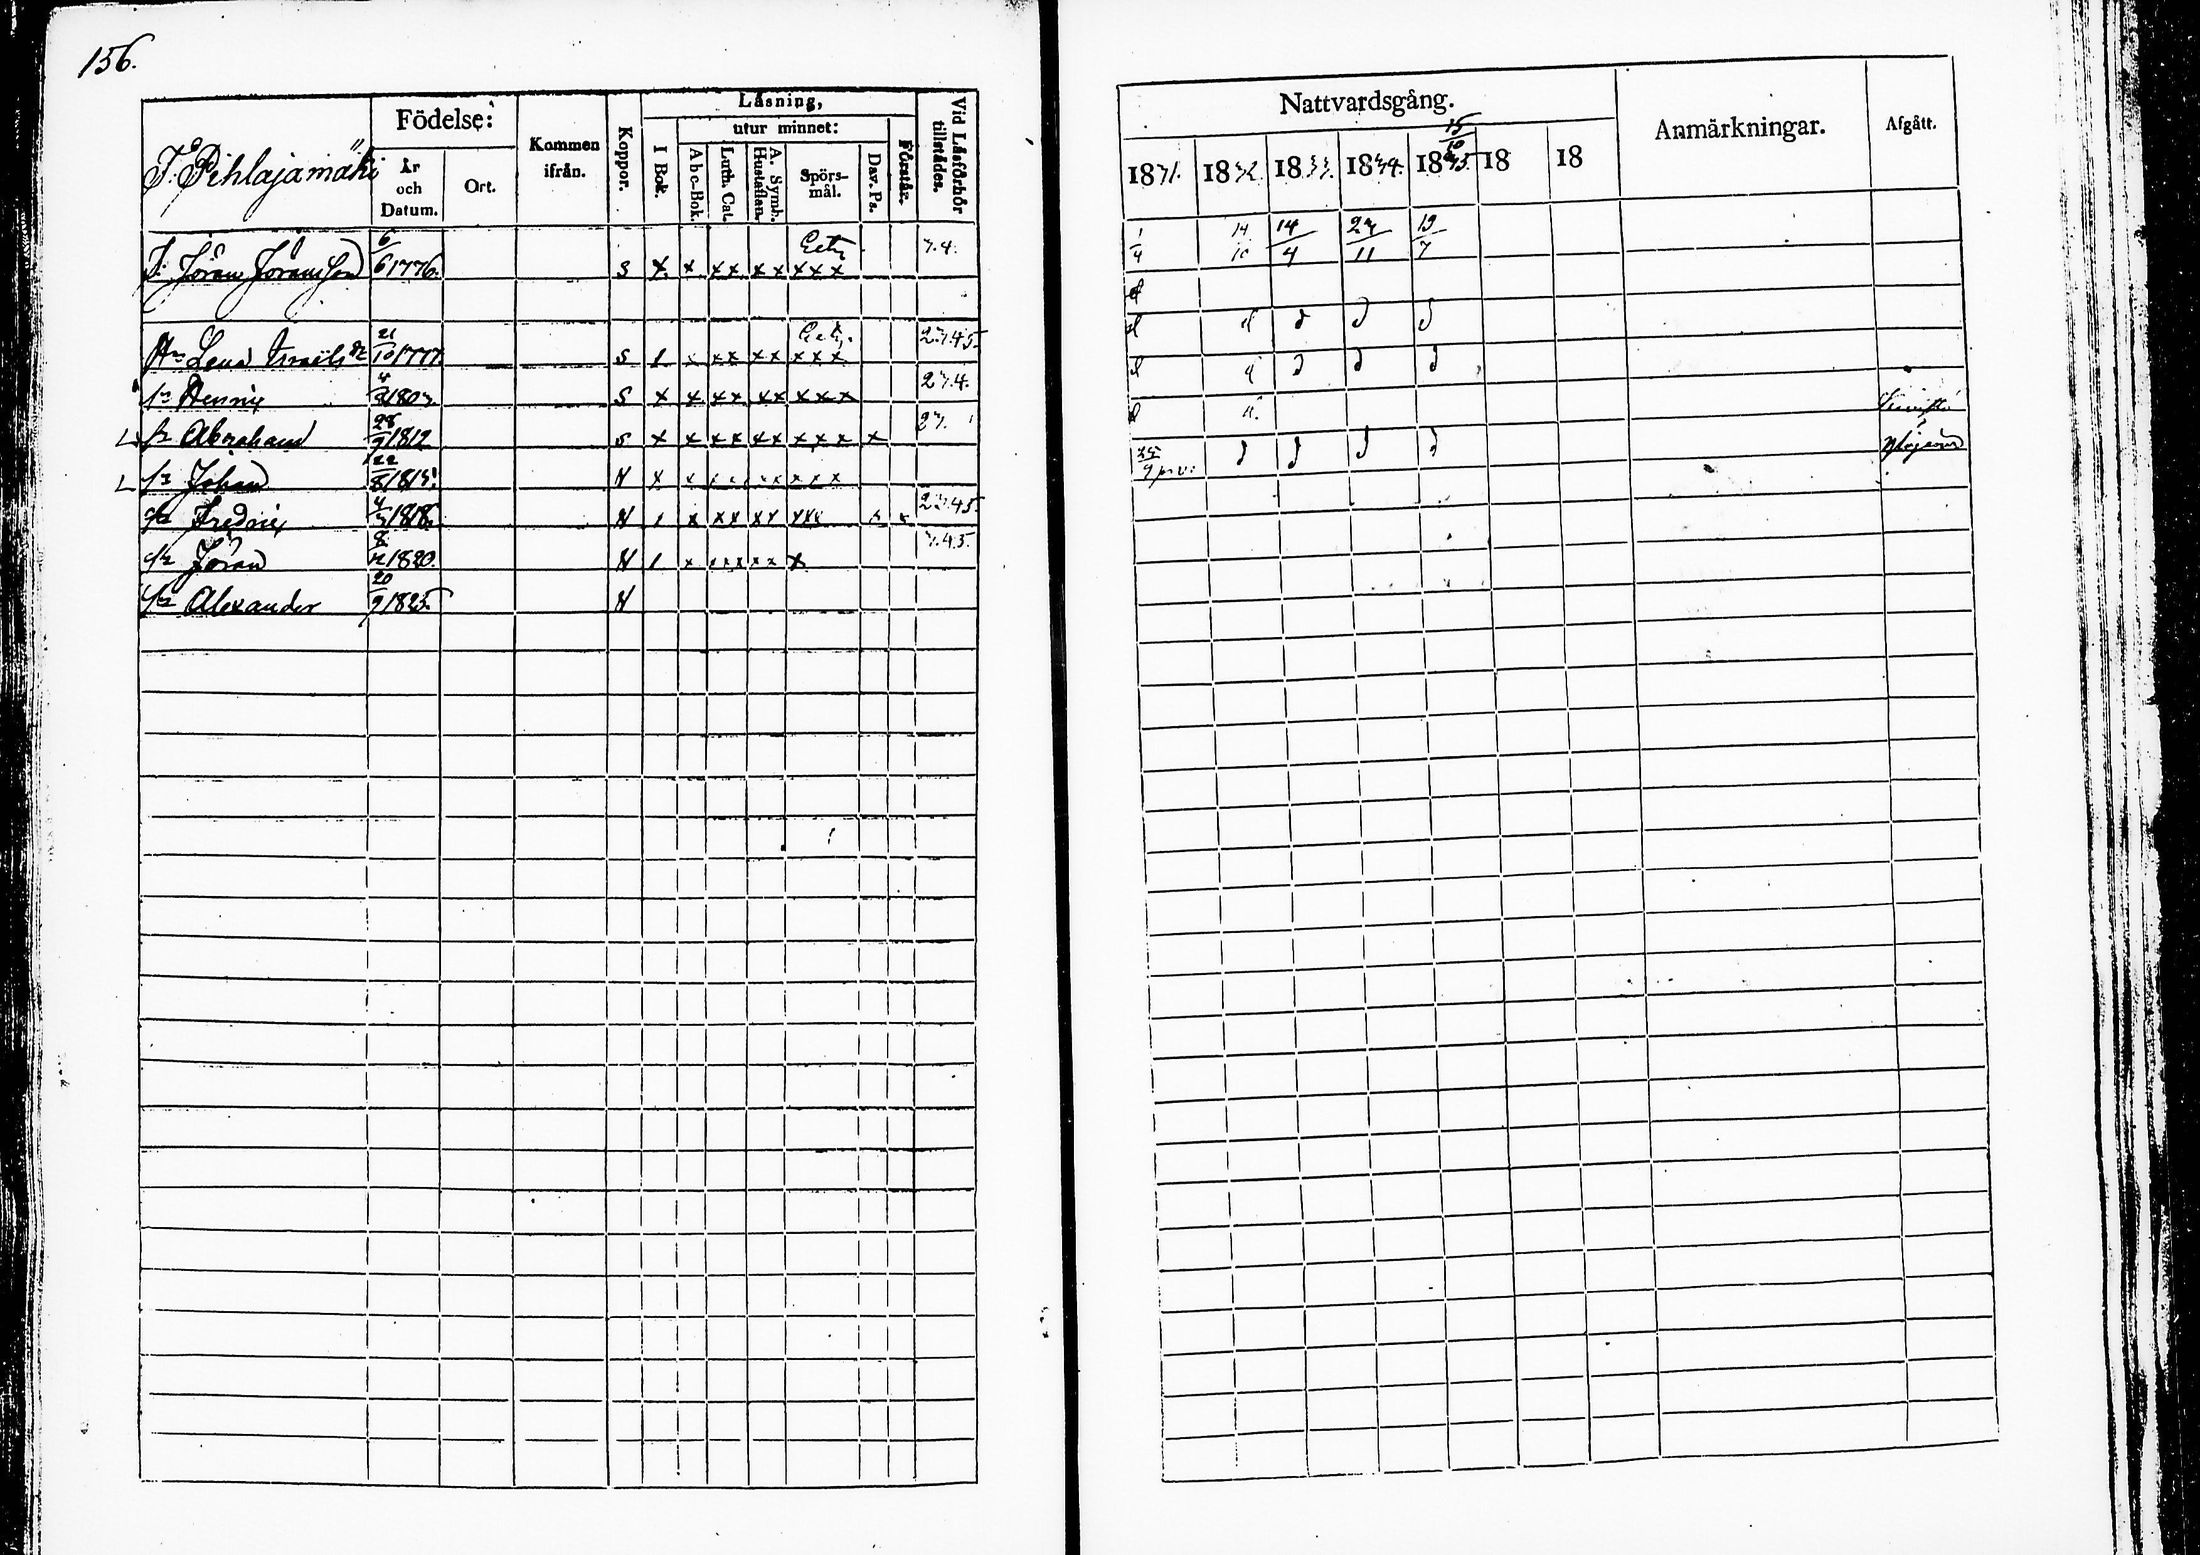 156.
T. Pihlajamäki
Födelse:
År och Datum.
Ort.
Kommen ifrån.
Koppor.
Läsning,
I Bok.
utur minnet:
Abc-Bok.
Luth. Cat.
A. Symb. Hustaflan.
Spörsmål.
Dav. Ps.
Förstår.
Vid Läsförhör tillstädes.
Nattvardsgång.
1831. 1832. 1833. 1834. 1835. 18 18
15/10
Anmärkningar.
Afgått.
T. Jöran Jöransson 6/6 1776. S x x xx xx xxx 3.4. 1/4 14/10 14/4 27/11 19/7
Hu Lena Israels dr 21/10 1777. S 1 x xx xx xxx 2.3.4.5.
Henric 4/ 1803. S x x xx xx xxx 2 3.4.
Abraham 28/9 1812 S x x xx xx xxx x 2 3.
Johan 22/8 1815. N x x xx xx xxx
Fredric 4/ 1818. N 1 x xx xx xxx 2 3.4.5.
Jöran 8/ 1820. N 1 x xx xx x 3.4.5.
Alexander 20/9 1825. N